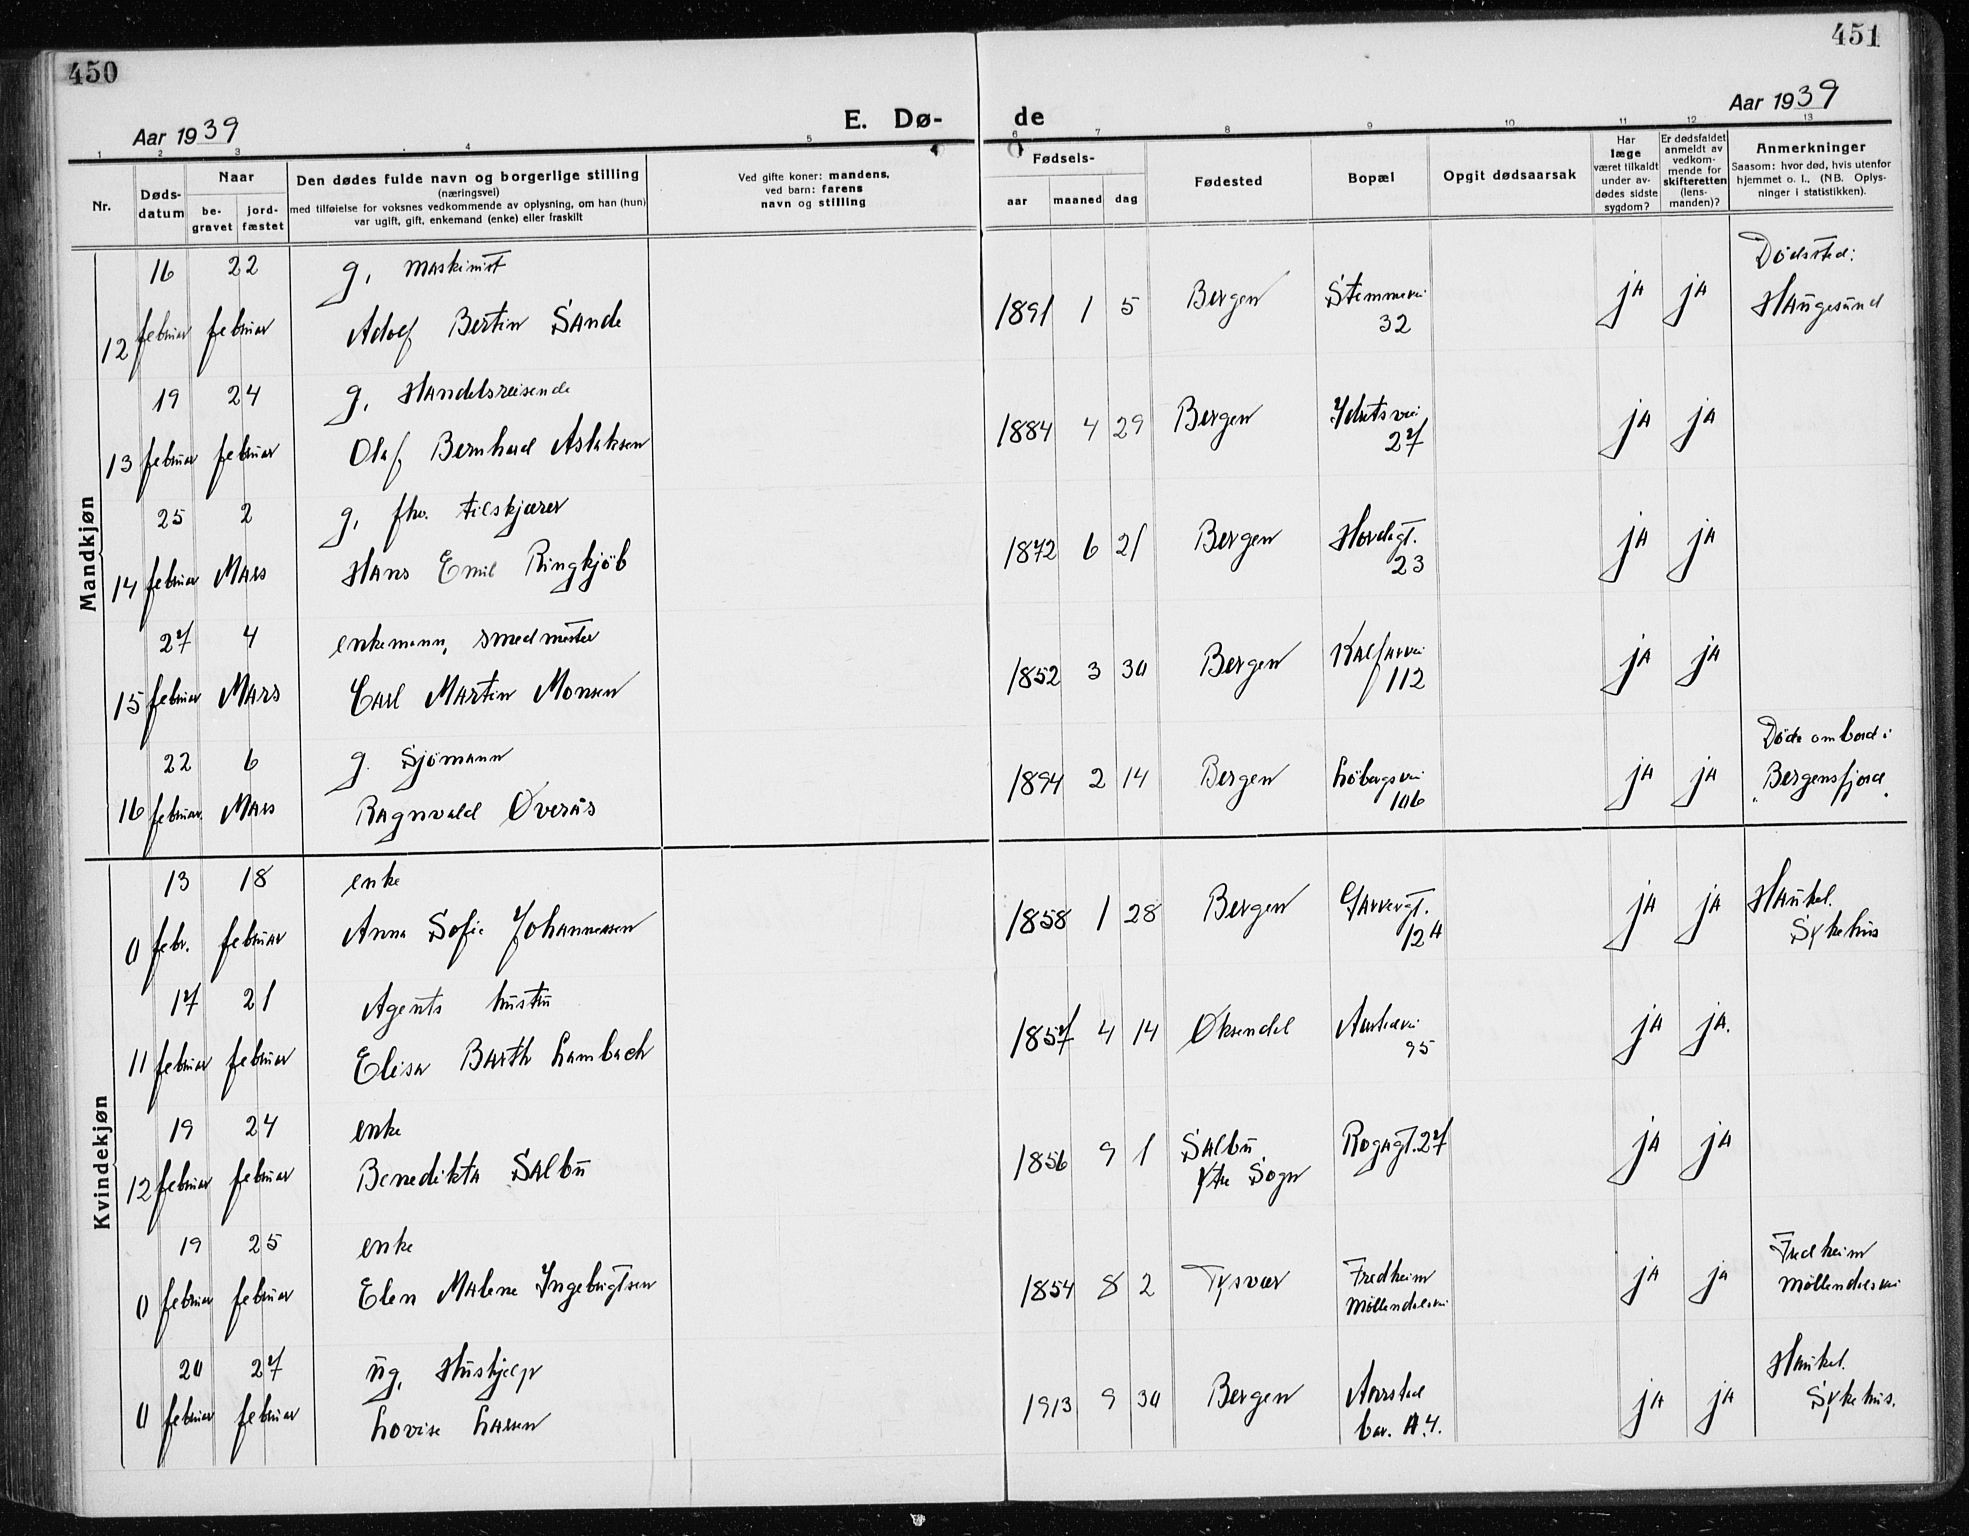 450
451
Aar 1939
E. Dø-
de
Aar 1939
1 2 3 4 5 6 7 8 9 10 11 12 13
Nr.
Døds-
datum
Naar
be-
gravet
jord-
fæstet
Den dødes fulde navn og borgerlige stilling
(næringsvei)
med tilføielse for voksnes vedkommende av oplysning, om han (hun)
var ugift, gift, enkemand (enke) eller fraskilt
Ved gifte koner: mandens,
ved barn: farens
navn og stilling
Fødsels-
aar maaned dag
Fødested
Bopæl
Opgit dødsaarsak
Har
læge
været tilkaldt
under av-
dødes sidste
sygdom?
Er dødsfaldet
anmeldt av
vedkom-
mende for
skifteretten
(lens-
manden)?
Anmerkninger
Saasom: hvor død, hvis utenfor
hjemmet o. l., (NB. Oplys-
ninger i statistikken).
Mandkjøn
16 22 g, maskinist Dødssted:
1891 1 5 Bergen Stemmevei ja ja Haugesund
32
12 februar februar Adolf Bertin Sande
19 24 g, Handelsreisende
1884 4 29 Bergen Idrætsvei ja ja
27
13 februar februar Olaf Bernhard Aslaksen
25 2 g, fhv. tilskjærer
1872 6 21 Bergen Hordagt. ja ja
23
14 februar Mars Hans Emil Ringkjöb
27 4 enkemann, smedmester
1852 3 30 Bergen Kalfarvei ja ja
112
15 februar Mars Carl Martin Monsen
22 6 g. Sjömann Døde ombord i
1894 2 14 Bergen Löbergsvei ja ja "Bergensfjord"
106
16 februar Mars Ragnvald Øverås
Kvindekjøn
13 18 enke
1858 1 28 Bergen Garvergt. ja ja Haukel.
12A Sykehus
0 febr. februar Anna Sofie Johannessen
17 21 Agents hustru
1857 4 14 Øksendal Aarstadvei ja ja.
95
11 februar februar Elisa Barth Lambach
19 24 enke
1856 9 1 Salbu Rogagt. 27 ja ja
Ytre Sogn
12 februar februar Benedikta Salbu
19 25 enke Fredheim
1854 8 2 Tysvær Fredheim ja ja Möllendalsvei
Möllendalsvei
0 februar februar Elen Malene Ingebrigtsen
20 27 ug, Hushjelp Haukel.
1913 9 30 Bergen Aarstad ja ja Sykehus.
bar. A.4.
0 februar februar Lovise Larsen